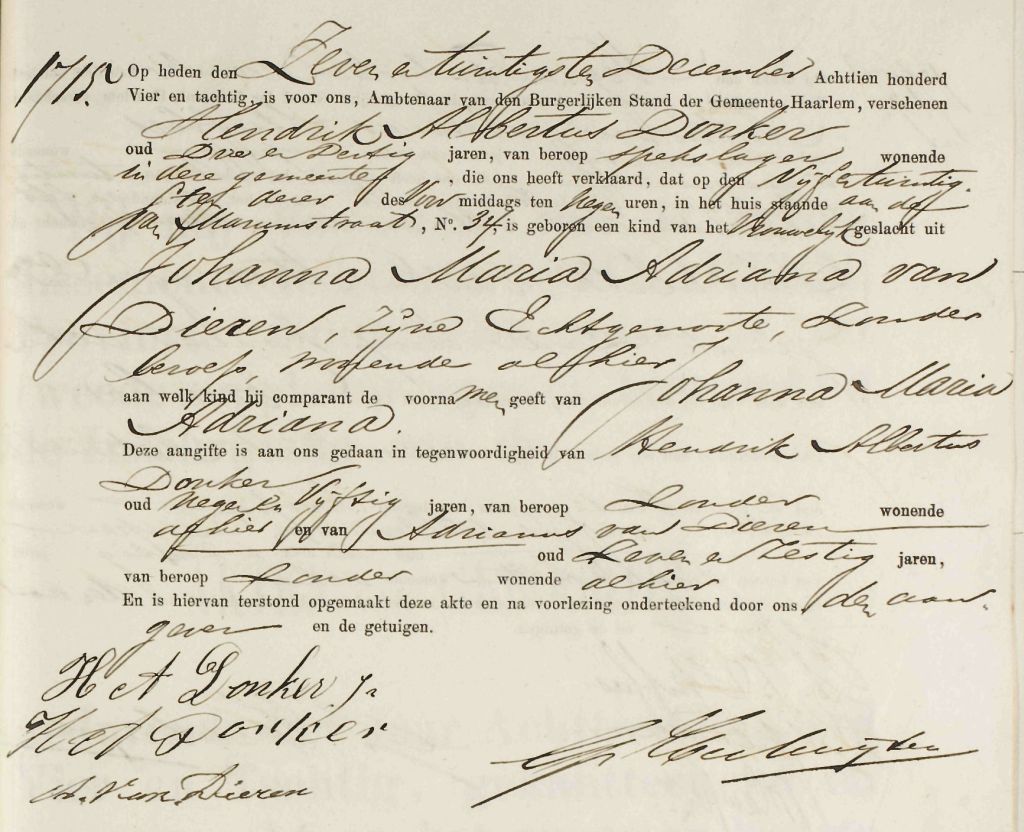 1715. Op heden den Zeven en twintigsten December Achttien honderd
Vier en tachtig, is voor ons, Ambtenaar van den Burgerlijken Stand der Gemeente Haarlem, verschenen
Hendrik Albertus Donker
oud Drie en Dertig jaren, van beroep spekslager wonende
in deze gemeente, die ons heeft verklaard, dat op den Vijf en twintig-
sten dezer des Voor middags ten Negen uren, in het huis staande aan de
van Marumstraat, No. 34, is geboren een kind van het Vrouwelijk geslacht uit
Johanna Maria Adriana van
Dieren, zijne Echtgenoote, Zonder
beroep, wonende alhier
aan welk kind hij comparant de voorna men geeft van Johanna Maria
Adriana.
Deze aangifte is aan ons gedaan in tegenwoordigheid van Hendrik Albertus
Donker
oud Negen en Vijftig jaren, van beroep Zonder wonende
alhier en van Adrianus van Dieren
oud Zeven en Zestig jaren,
van beroep Zonder wonende alhier
En is hiervan terstond opgemaakt deze akte en na voorlezing onderteekend door ons, den aan-
gever en de getuigen.
H A Donker Jr
H A Donker
A. van Dieren